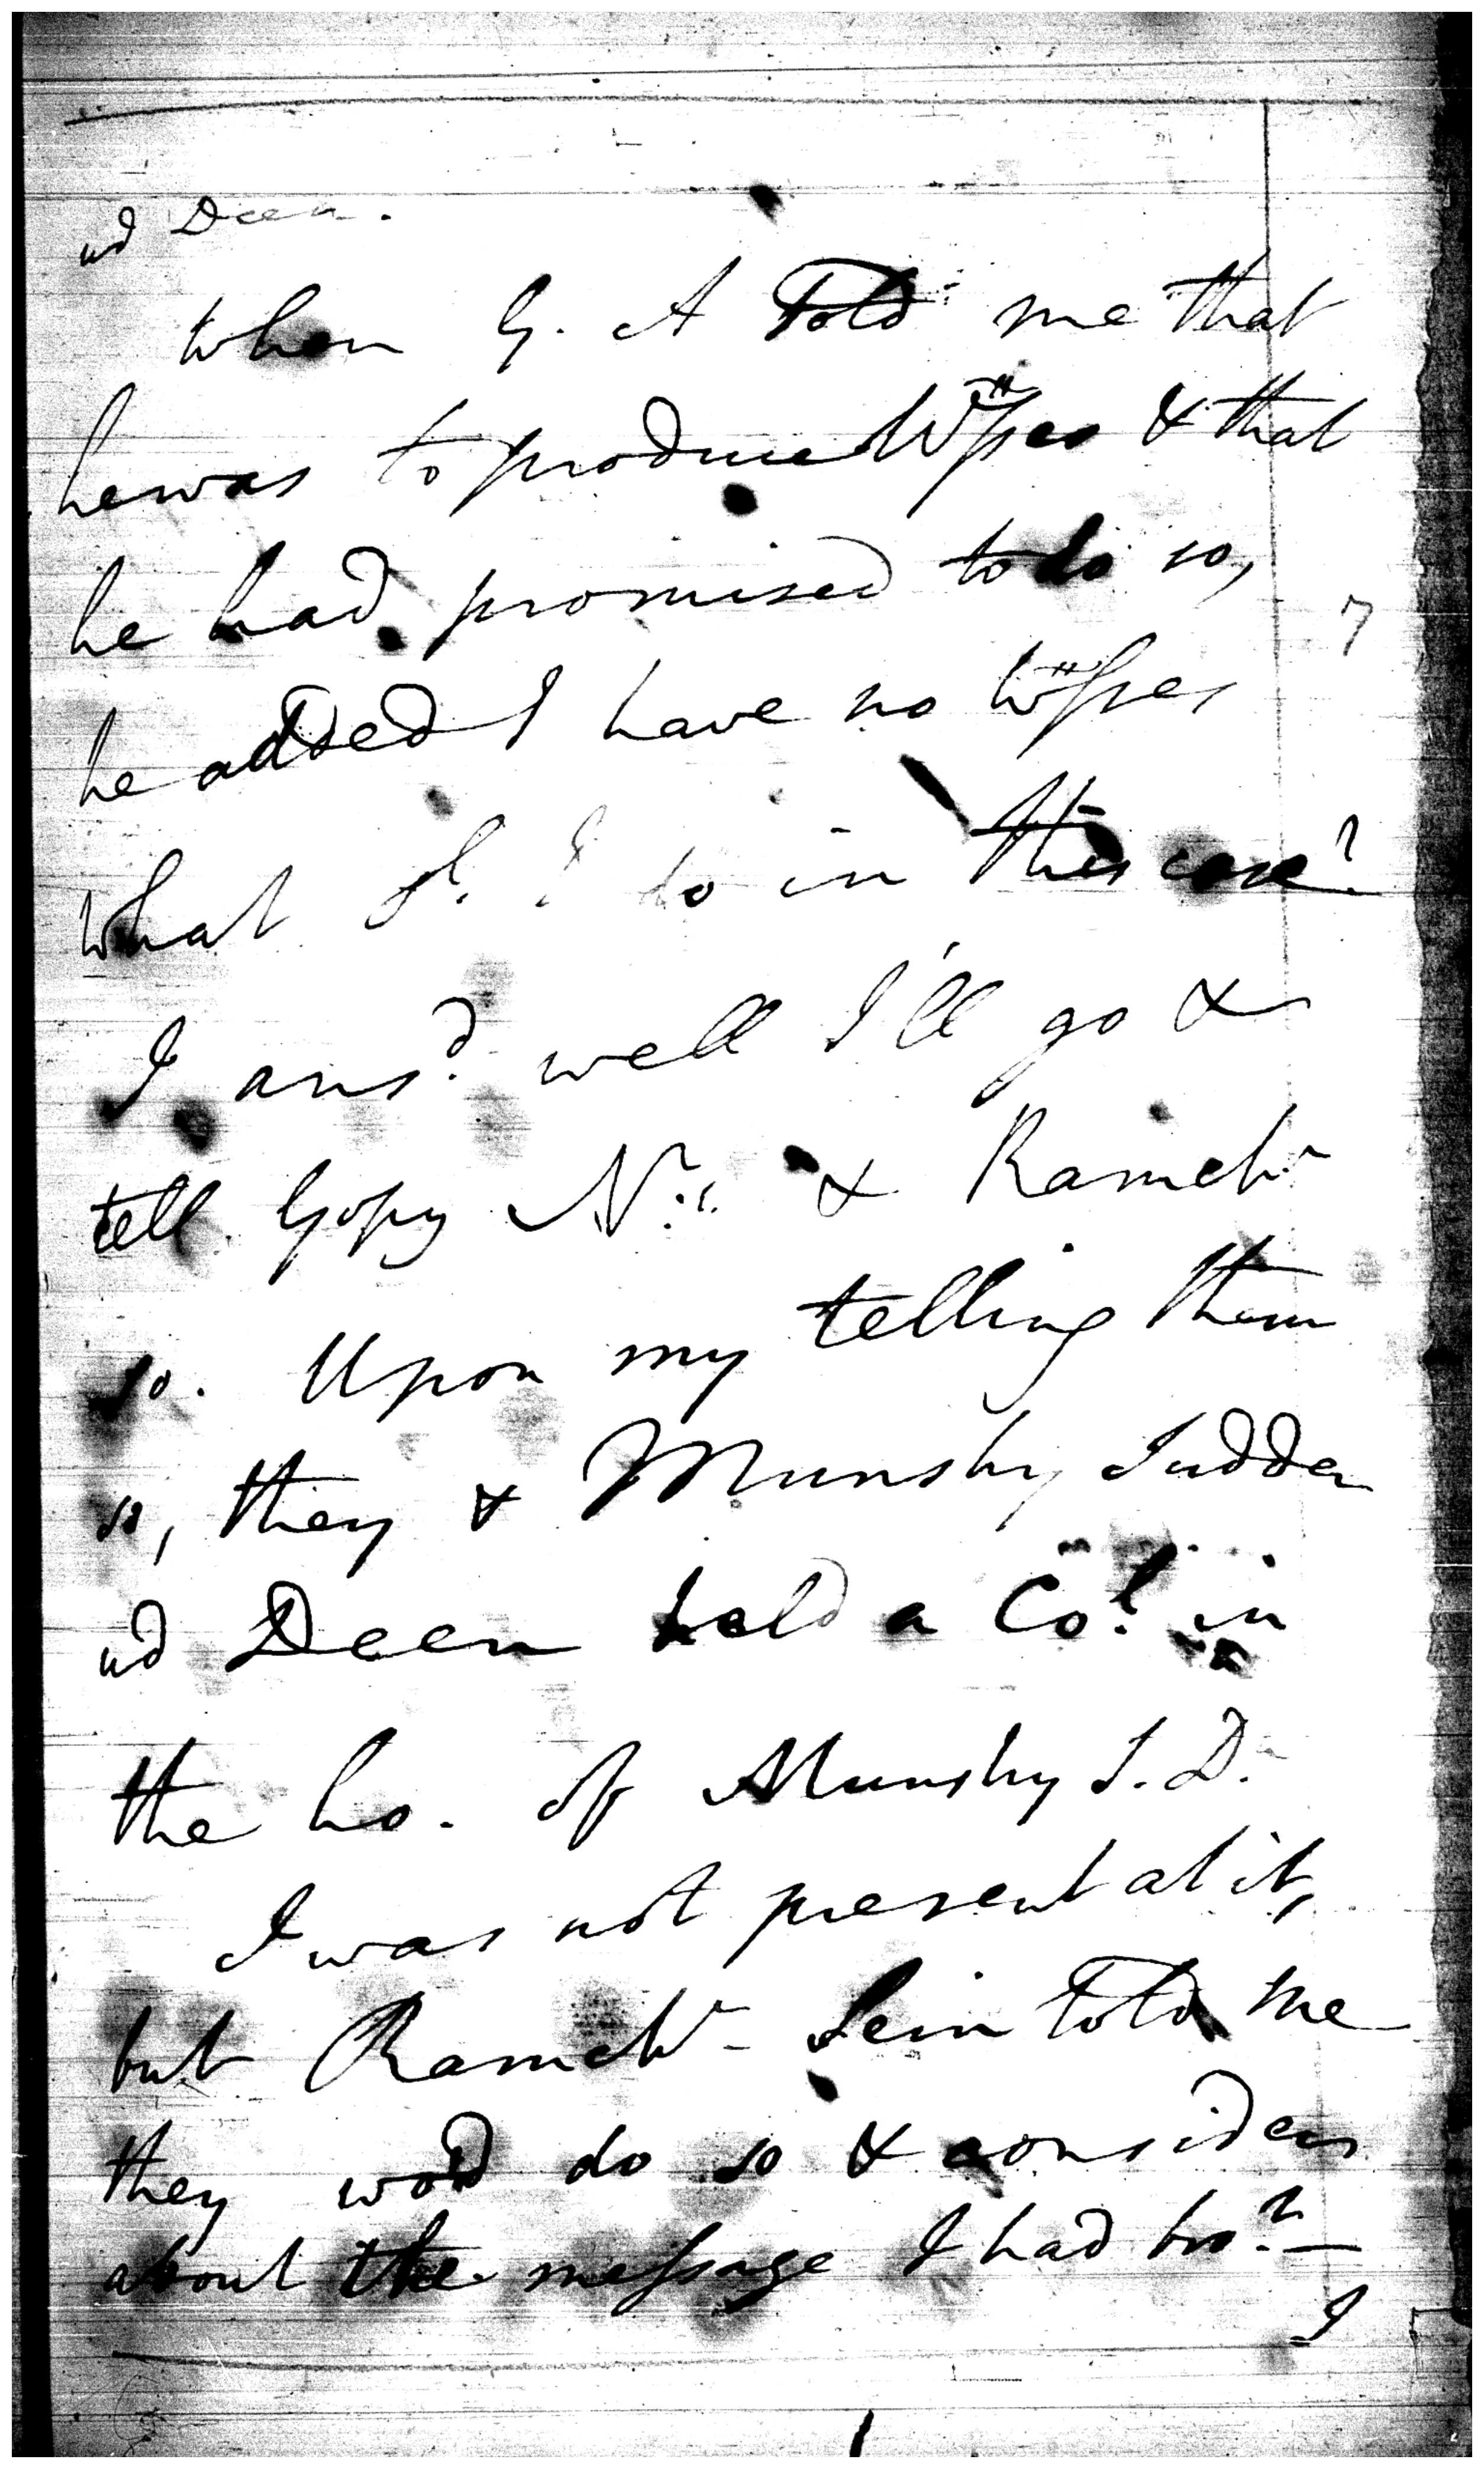 ud Deen.
When G. A Told me that
he was to produce Wttsses & that
he had promised to do so,
he added I have no Wttsses
What to do in this case?
I ansd. well I'll go &
tell Gopy N. & Ramchr
so. Upon my telling them
so, they & Munshy Sudder
ud Deen held a Col. in
the ho. of Munshy S. D.
I was not present at it,
but Ramchr Sein Told me
they wod do so & consider
about the message I had bro.
I
7